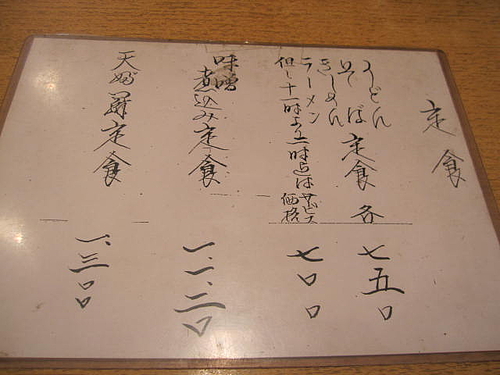 定食
うどん
そば 定食 各 七五〇
きしめん
ラーメン
但し十一時より二時迄はサービス価格 七〇〇
味噌煮込み定食 一、一二〇
天婦羅定食 一、三〇〇